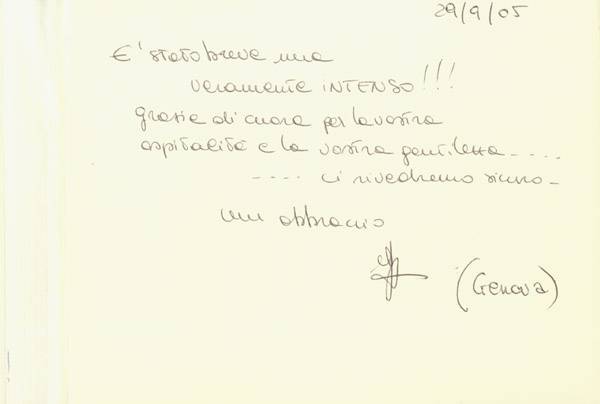 29/9/05
E' stato breve ma
veramente INTENSO!!!
grazie di cuore per la vostra
ospitalità e la vostra gentilezza.....
..... ci rivedremo sicuro-
un abbraccio
(Genova)